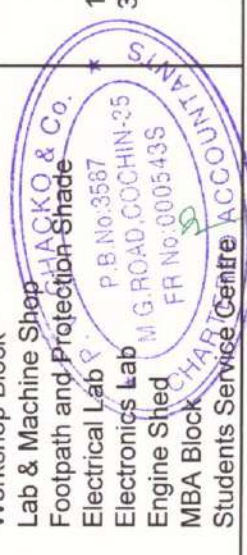 Workshop Block
Lab & Machine Shop
Footpath and Protection Shade
Electrical Lab
Electronics Lab
Engine Shed
MBA Block
Students Service Centre
P. CHACKO & Co.
P.B.No:3587
M.G.ROAD,COCHIN-35
FR No:000543S
CHARTERED ACCOUNTANTS